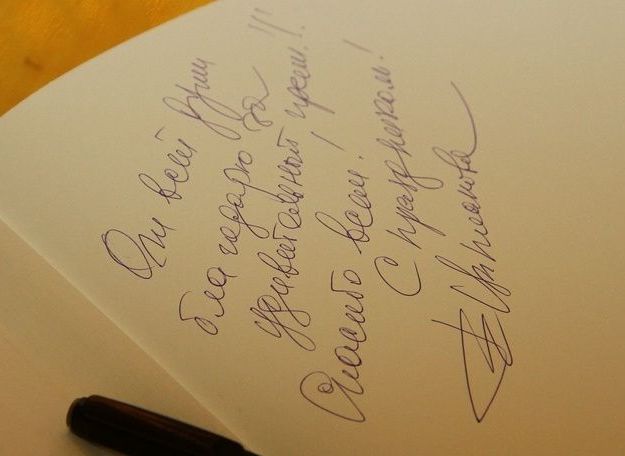 От всей души
благодарю за
удивительный приём!!!
Спасибо всем!
С праздником!